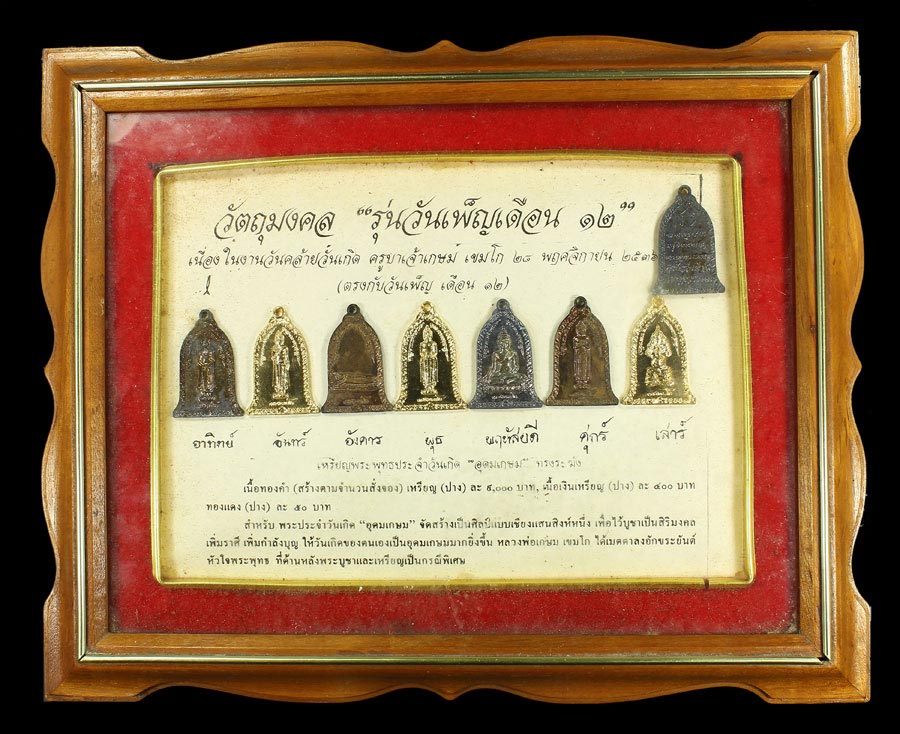 วัตถุมงคล “รุ่นวันเพ็ญเดือน ๑๒”
เนื่องในงานวันคล้ายวันเกิด ครูบาเจ้าเกษม เขมโก ๒๘ พฤศจิกายน ๒๕๓๖
(ตรงกับวันเพ็ญ เดือน ๑๒)
อาทิตย์ จันทร์ อังคาร พุธ พฤหัสบดี ศุกร์ เสาร์
เหรียญพระพุทธประจำวันเกิด “อุดมเกษม” ทรงระฆัง
เนื้อทองคำ (สร้างตามจำนวนสั่งจอง) เหรียญ (ปาง) ละ ๙,๐๐๐ บาท, เนื้อเงินเหรียญ (ปาง) ละ ๔๐๐ บาท
ทองแดง (ปาง) ละ ๕๐ บาท
สำหรับ พระประจำวันเกิด “อุดมเกษม” จัดสร้างเป็นศิลป์แบบเชียงแสนสิงห์หนึ่ง เพื่อไว้บูชาเป็นสิริมงคล
เพิ่มราศี เพิ่มกำลังบุญ ให้วันเกิดของตนเองเป็นอุดมเกษมมากยิ่งขึ้น หลวงพ่อเกษม เขมโก ได้เมตตาลงอักขระยันต์
หัวใจพระพุทธ ที่ด้านหลังพระบูชาและเหรียญเป็นกรณีพิเศษ